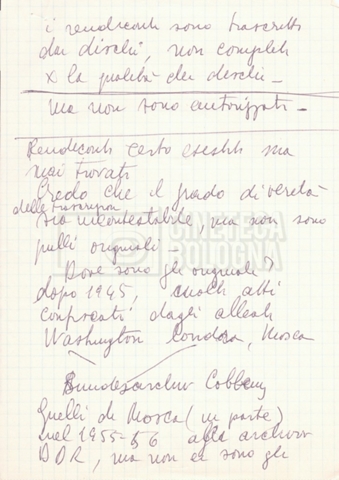 i rendiconti sono trascritti
dai dischi, non completi
x la qualità dei dischi –
ma non sono autorizzati –
Rendiconti certo esistiti ma
mai trovati
Credo che il grado di verità
delle trascrizioni
sia incontestabile, ma non sono
quelli originali –
Dove sono gli originali?
dopo 1945, molti atti
confiscati dagli alleati
Washington Londra, Mosca
Bundesarchiv Coblenz
Quelli di Mosca (in parte)
nel 1955-56 alla archivio
DDR, ma non ci sono gli
CINETECA
BOLOGNA